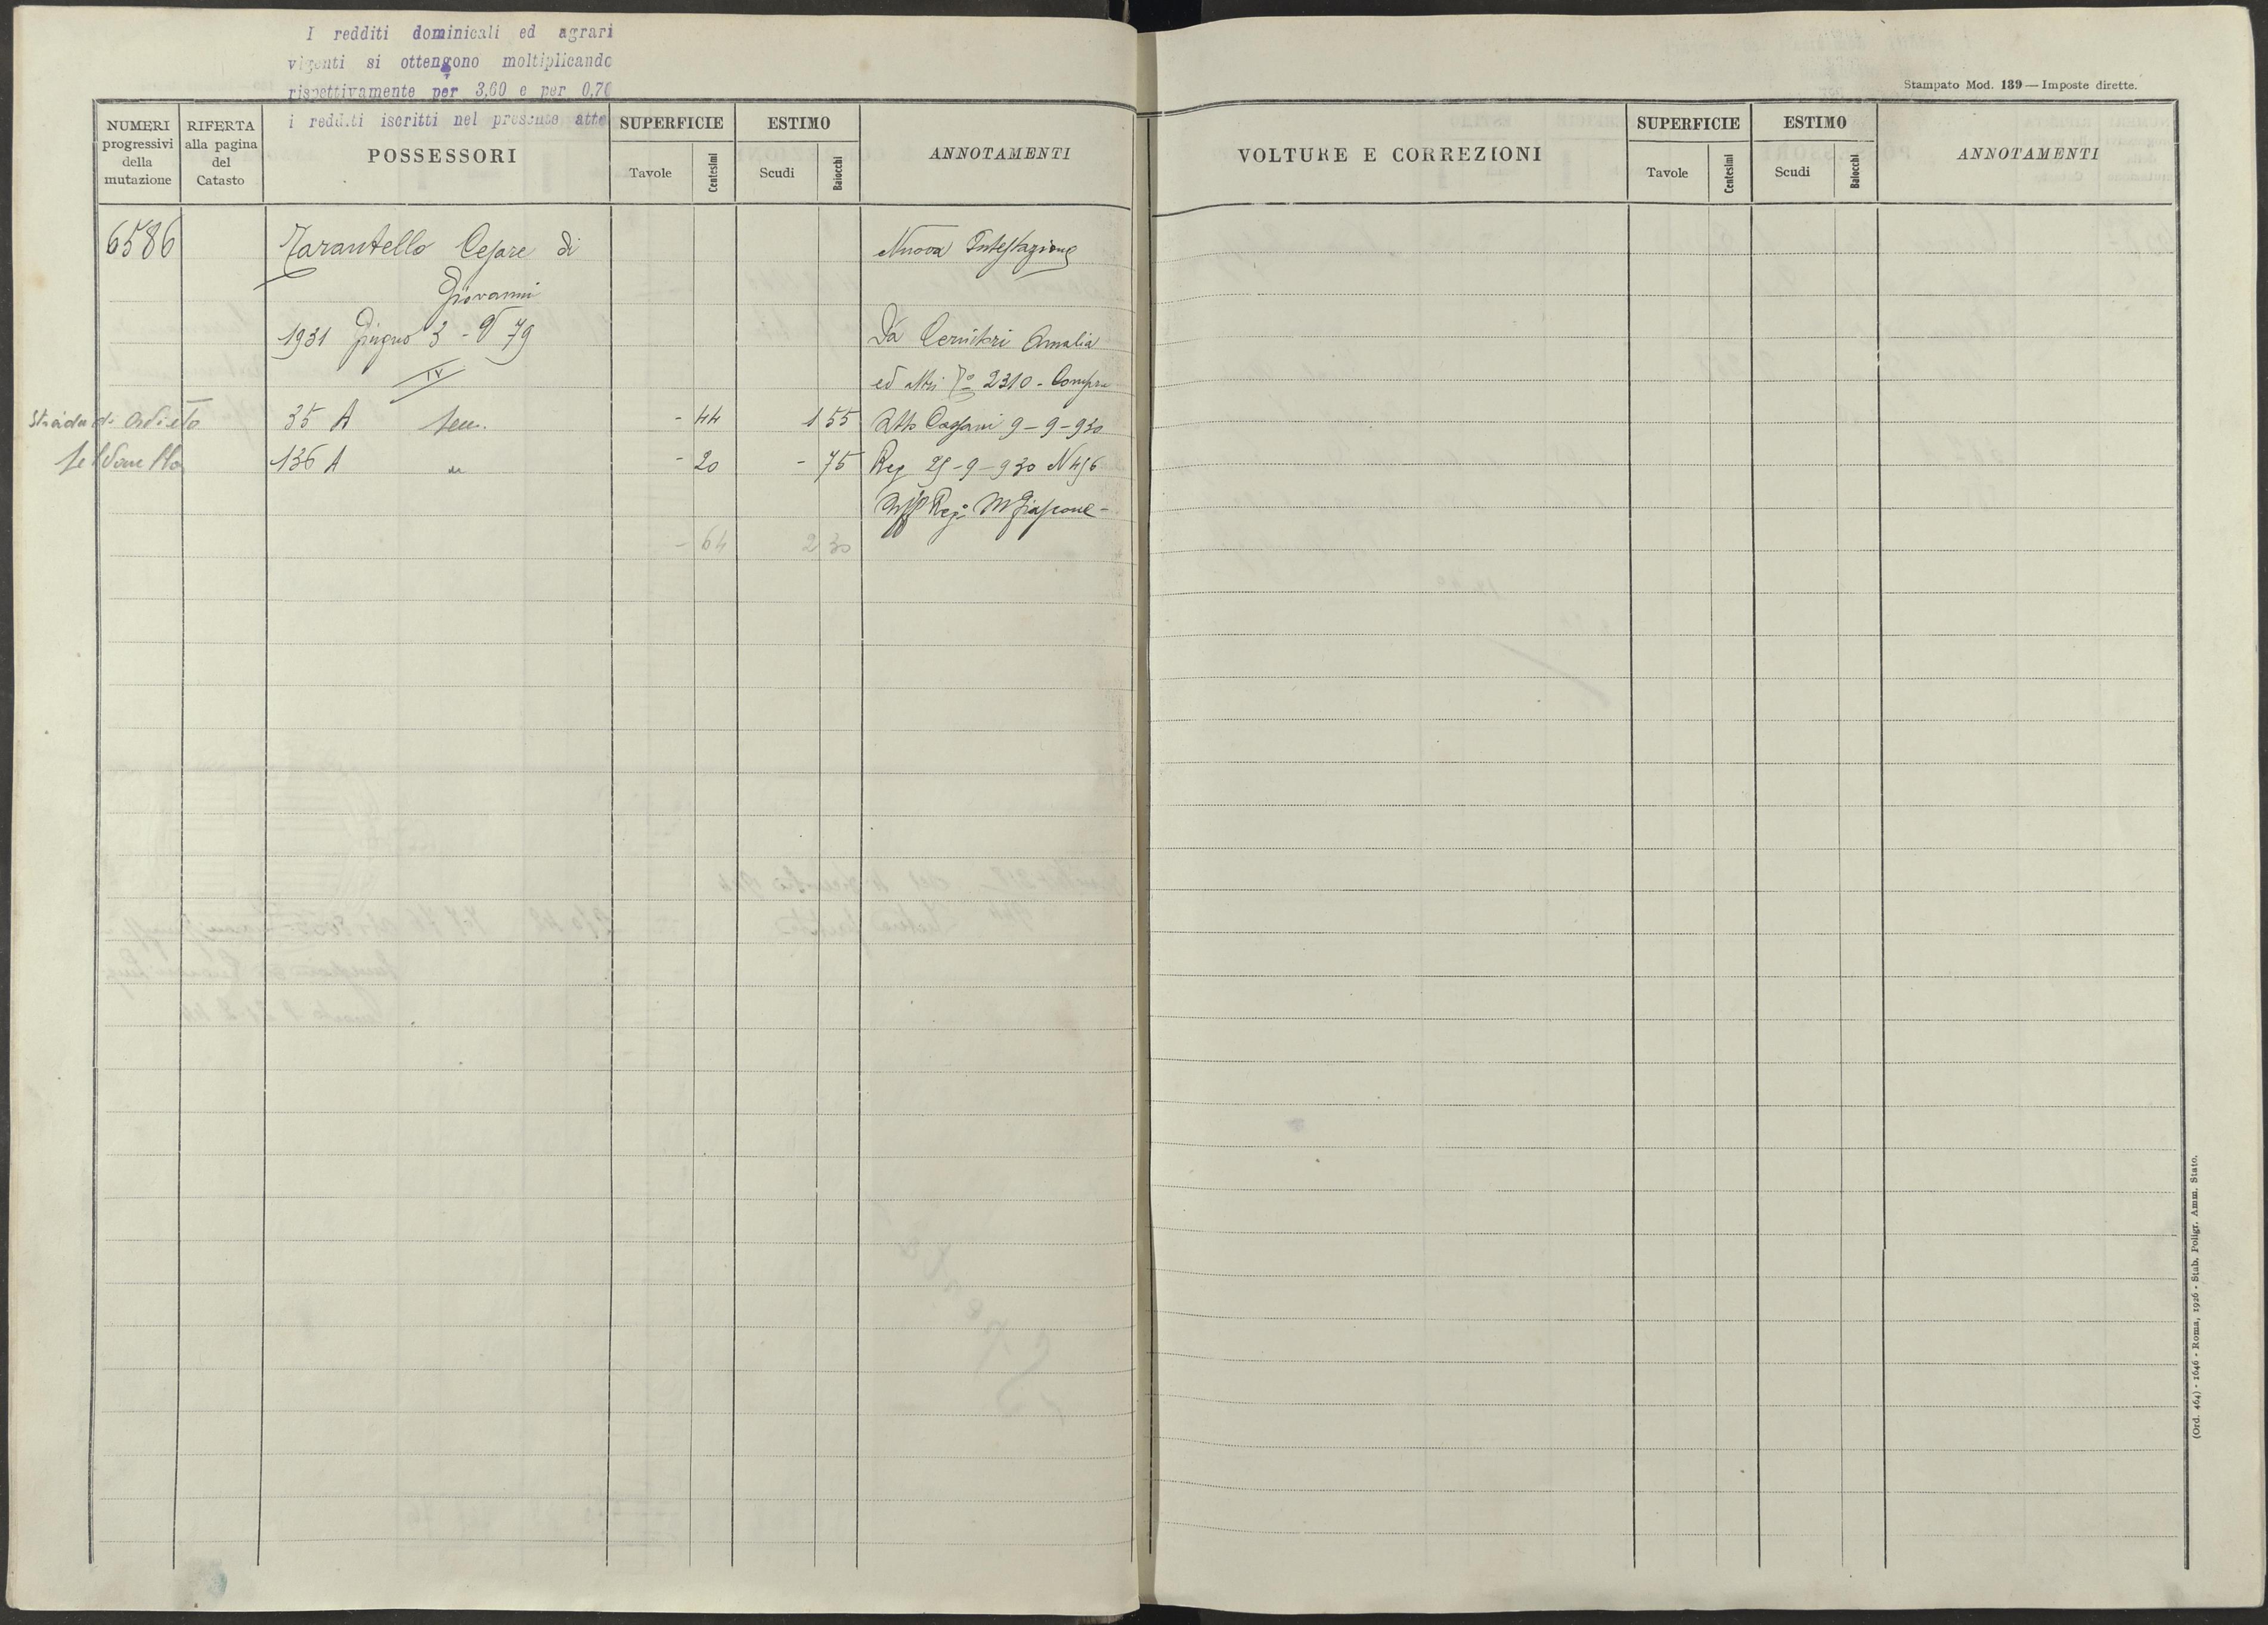 I redditi dominicali ed agrari
vigenti si ottengono moltiplicando
rispettivamente per 3,60 e per 0,70
i redditi iscritti nel presente atto
NUMERI
progressivi
della
mutazione
RIFERTA
alla pagina
del
Catasto
POSSESSORI
SUPERFICIE
Tavole
Centesimi
ESTIMO
Scudi
Baiocchi
ANNOTAMENTI
6586 Tarantello Cesare di Nuova Intestazione
Giovanni
1931 Giugno 3 - V 79 Da Amalia
IV
ed altri 2310 - Compra
Strada di 35 A Sem. - 44 1 55 Atto 9-9-930
136 A " - 20 - 75 Reg 25-9-930 N 456
Reg°
- 64 2 30
Stampato Mod. 139 — Imposte dirette.
VOLTURE E CORREZIONI
SUPERFICIE
Tavole
Centesimi
ESTIMO
Scudi
Baiocchi
ANNOTAMENTI
(Ord. 464) - 1646 - Roma, 1926 - Stab. Poligr. Amm. Stato.